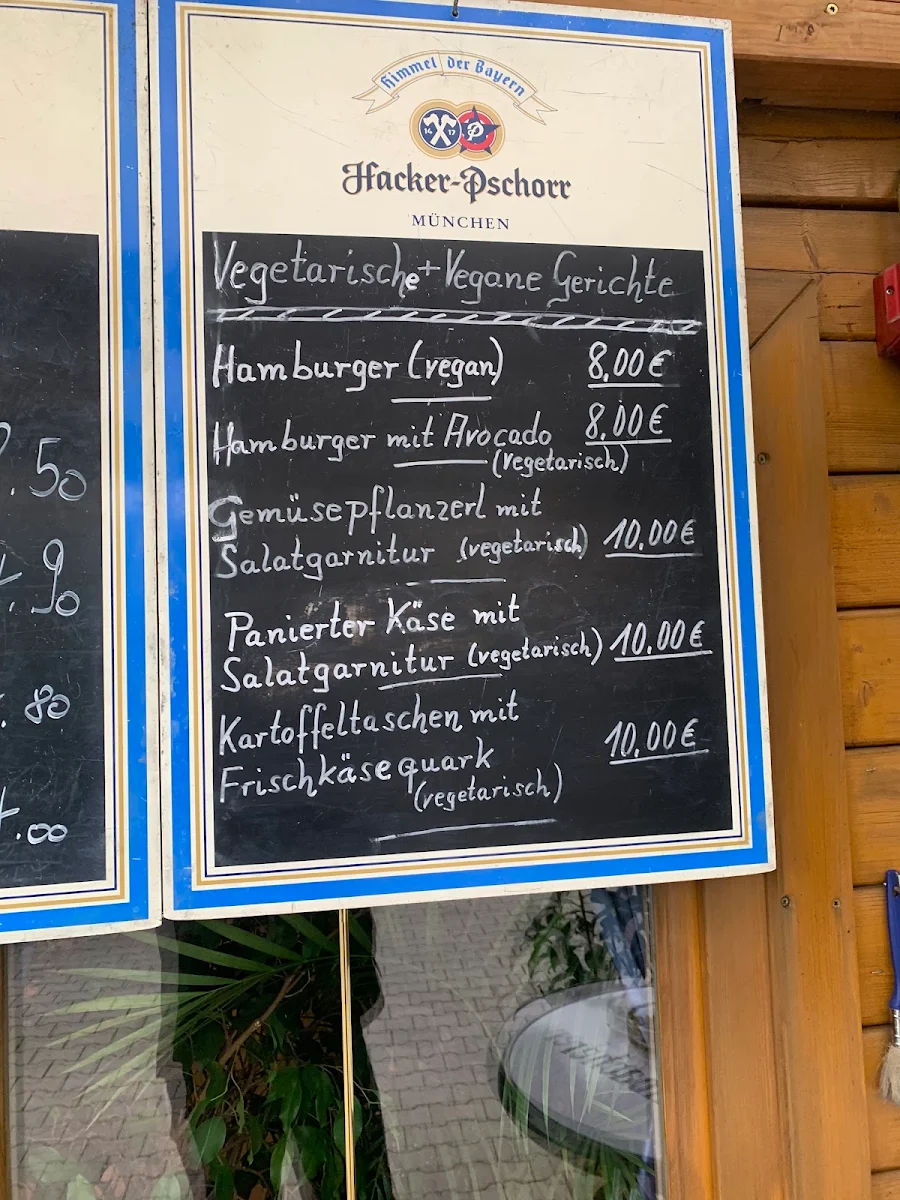 Himmel der Bayern
14 17
Hacker-Pschorr
MÜNCHEN
Vegetarische + Vegane Gerichte
Hamburger (vegan) 8,00€
Hamburger mit Avocado 8,00€
(vegetarisch)
Gemüsepflanzerl mit
Salatgarnitur (vegetarisch) 10,00€
Panierter Käse mit
Salatgarnitur (vegetarisch) 10,00€
Kartoffeltaschen mit
Frischkäsequark 10,00€
(vegetarisch)
.50
.90
.80
.00